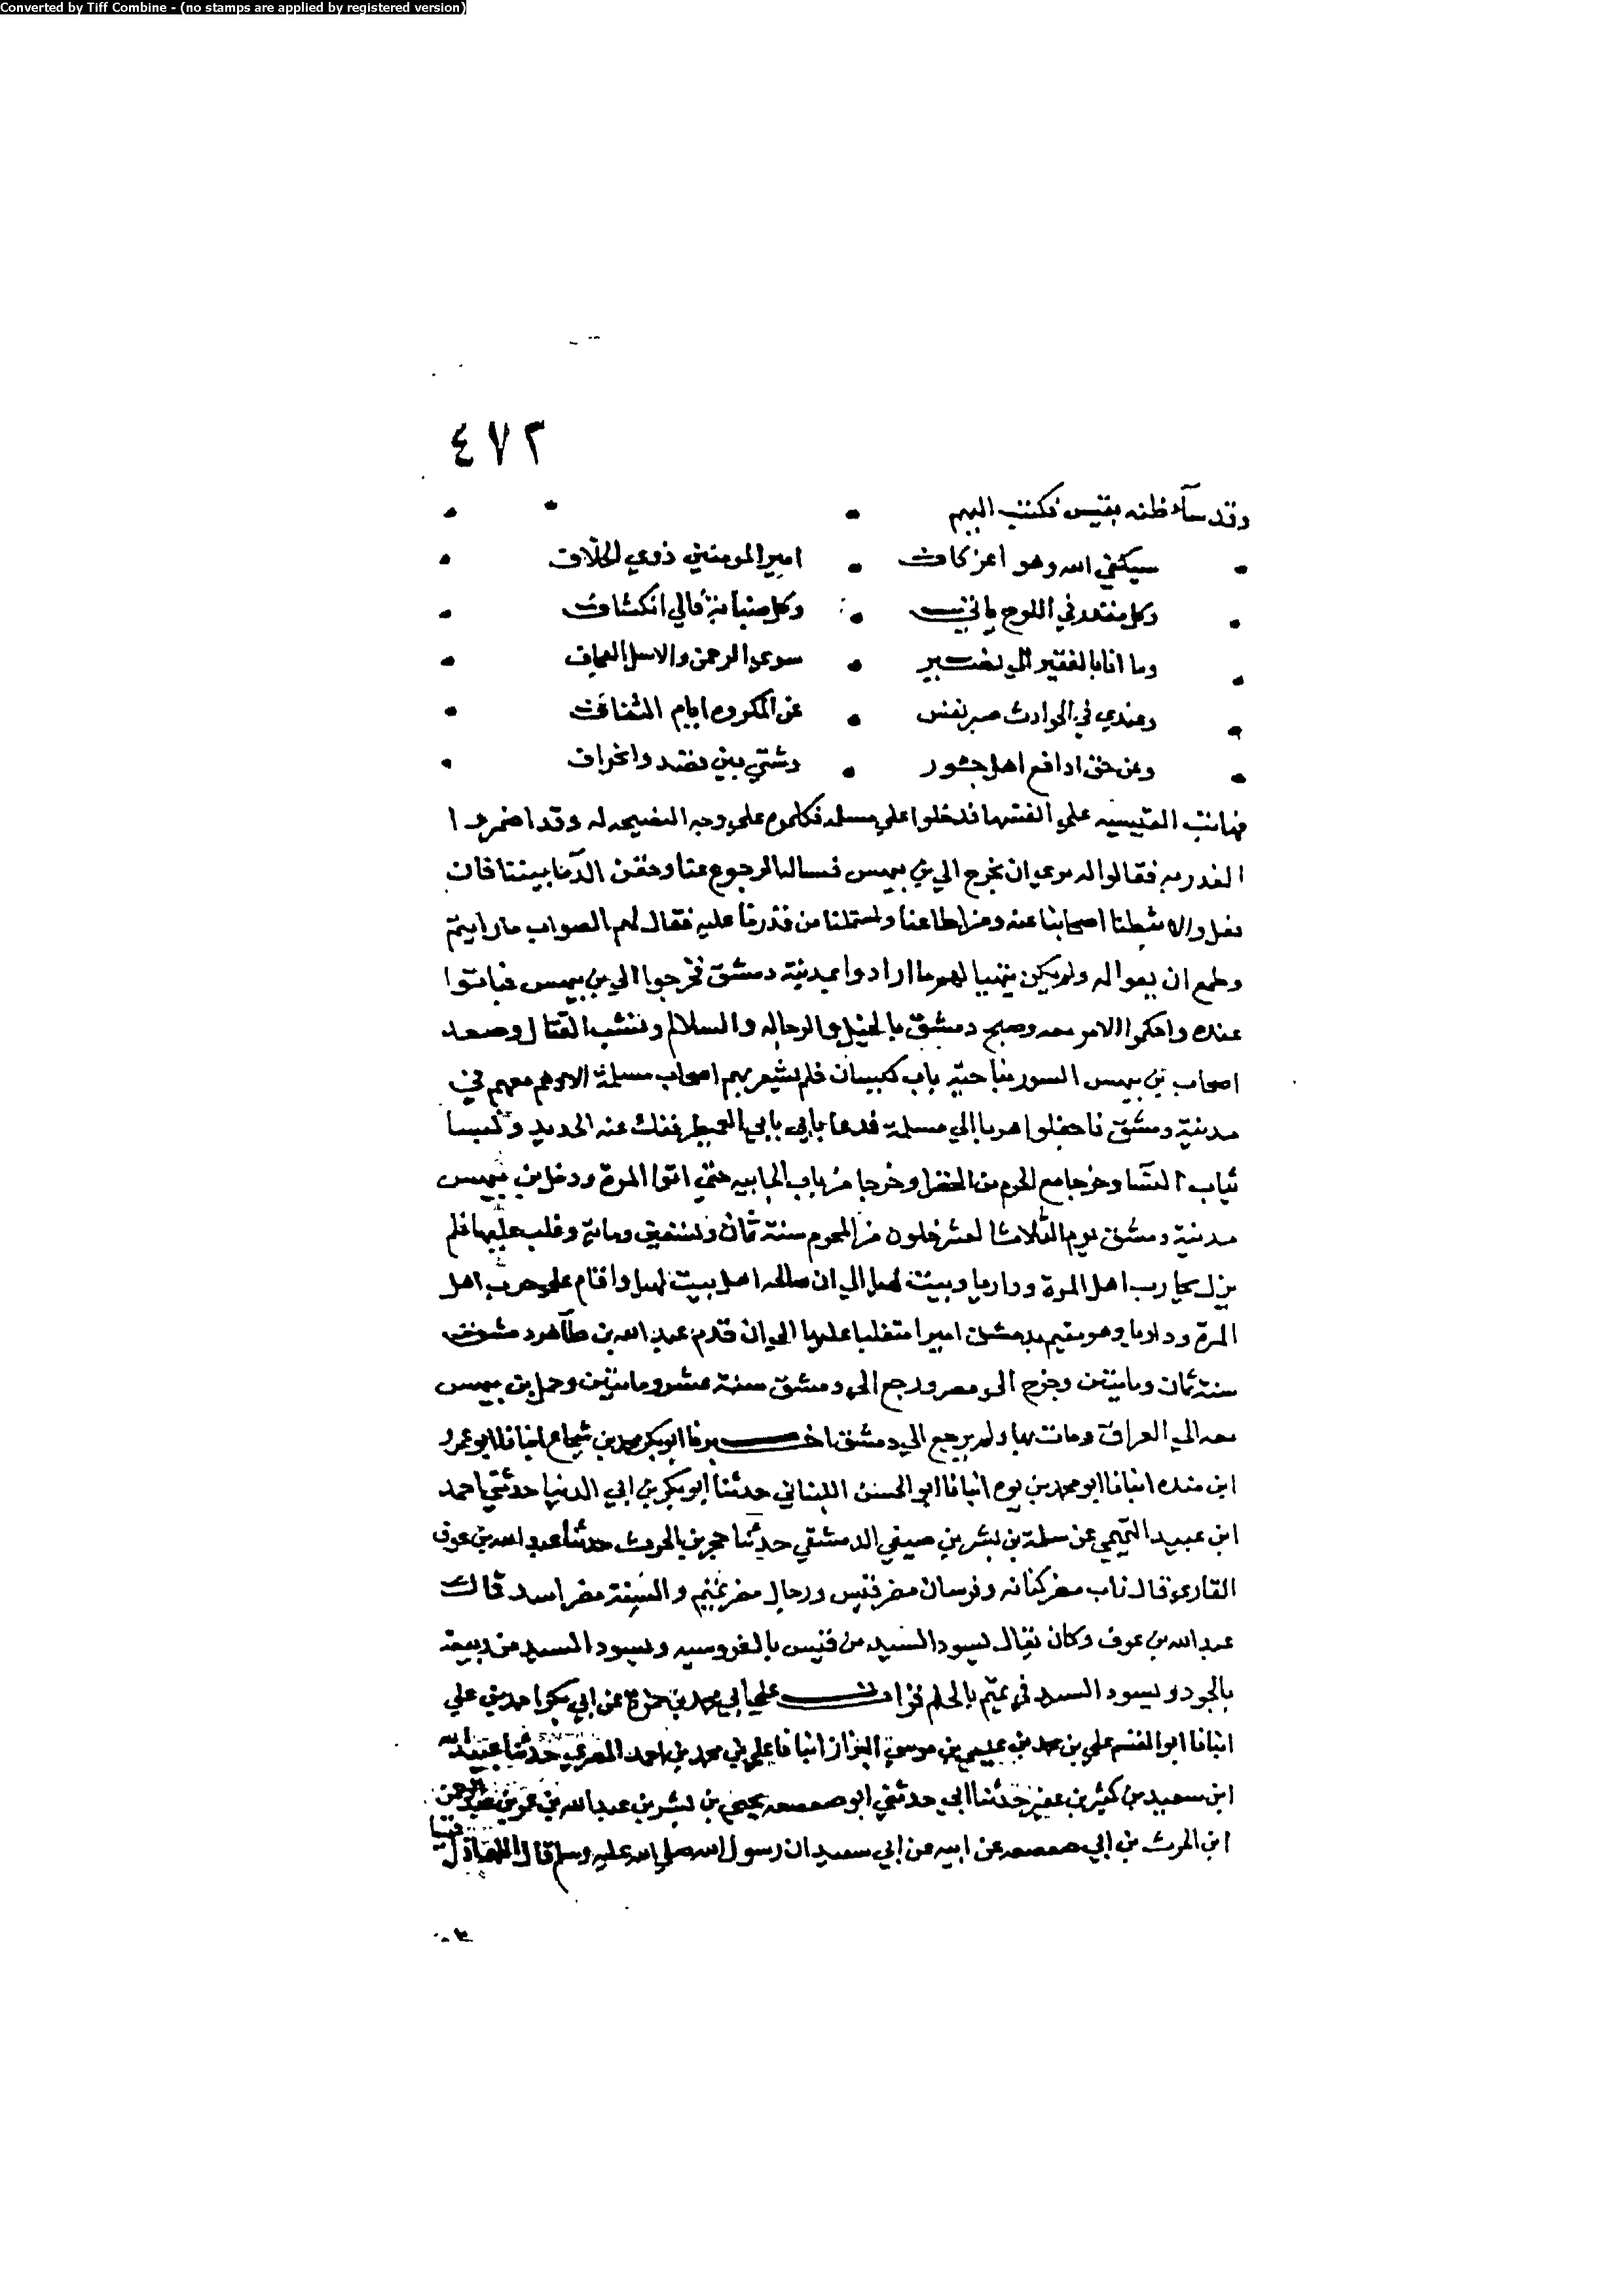 Converted by Tiff Combine - (no stamps are applied by registered version)
٤٧٢
وقد ساء ظنه بقيس فكتب اليهم
سيكفي الله وهو اعز كاف امير المومنين ذوي الخلاف
وكل مقدر في اللوح ياتي وكل ضبابة فالي انكشاف
وما انا بالفقير الي نصير سوي الرحمن والاسل العجاف
وعندي في الحوادث صبر نفس عن المكروه ايام الثقاف
وعن حق ادافع اهل جور وشتي بين قصد وانحراف
فباتت القيسيه علي الفتها فدخلوا علي مسلمه فكلموه علي وجه النصيحه له وقد اضمروا
الغدر به فقالوا له نري ان نخرج الي بن بيهس فنساله الرجوع عنا وحقن الدما بيننا فان
فعل والا ثبطنا اصحابنا عنه ومن اطاعنا واستملنا من قدرنا عليه فقال لهم الصواب ما رايتم
وطمع ان يفوا له ولم يكن يتهيا لهم ما ارادوا بمدينة دمشق فخرجوا الي بن بيهس فباتوا
عنده واحكموا الامر معه وصبح دمشق بالخيل والرجاله والسلالم ونشب القتال وصعد
اصحاب بن بيهس السور بناحية باب كيسان فلم يشعر بهم اصحاب مسلمة الا وهم معهم في
مدينة دمشق فاجفلوا هربا الي مسلمة فدعا بابي العميطر ففك عنه الحديد ولبسا
ثياب النسا وخرجا مع الحرم من الخضرا وخرجا من باب الجابيه حتي اتوا المزة ودخل بن بيهس
مدينة دمشق يوم الثلاثا لعشر خلون من المحرم سنة ثمان وتسعين وماية وغلب عليها فلم
يزل يحارب اهل المزة وداريا وبيت لهيا الي ان صالحه اهل بيت لهيا واقام علي حرب اهل
المزة وداريا وهو مقيم بدمشق اميرا متغلبا عليها الي ان قدم عبد الله بن طاهر دمشق
سنة ثمان ومايتين وخرج الي مصر ورجع الي دمشق سنة عشر ومايتين وحمل بن بيهس
معه الي العراق ومات بها ولم يرجع الي دمشق اخبرنا ابو بكر محمد بن شجاع انبانا ابو عمرو
ابن منده انبانا ابو محمد بن يوه انبانا ابو الحسن اللبناني حدثنا ابو بكر بن ابي الدنيا حدثني احمد
ابن عبيد التميمي عن سلمة بن بشر بن صيفي الدمشقي حدثنا حجر بن الحرث حدثنا عبد الله بن عوف
القاري قال ناب مضر كنانه وفرسان مضر قيس ورجال مضر تميم والسنة مضر اسد قال
عبد الله بن عوف وكان يقال يسود السيد من قيس بالفروسيه ويسود السيد من ربيعة
بالجود ويسود السيد في تميم بالحلم قرات علي ابي محمد بن حمزة عن ابي بكر احمد بن علي
انبانا ابو القسم علي بن محمد بن عيسي بن موسي البزاز انبانا علي بن محمد بن احمد المصري حدثنا عبيد الله
ابن سعيد بن كثير بن عفير حدثنا ابي حدثني ابو صعصعه يحيي بن بشر بن عبد الله بن عمر بن عبد الرحمن
ابن الحرث بن ابي صعصعه عن ابيه عن ابي سعيد ان رسول الله صلي الله عليه وسلم قال اللهم اذل قيسا